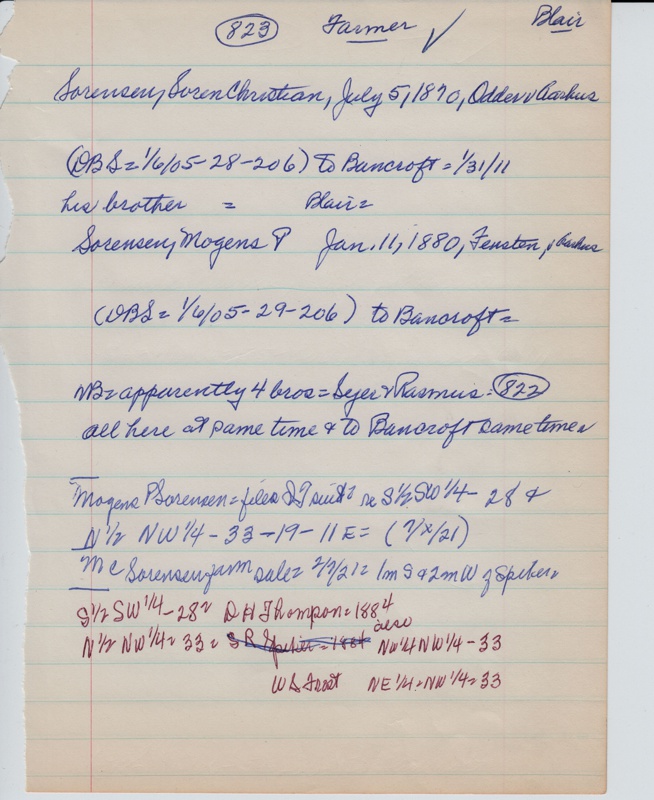 823 Farmer ✓ Blair
Sorensen, Soren Christian, July 5, 1870, Odder v Aarhus
(DBS = 1/6/05-28-206) to Bancroft = 1/31/11
his brother = Blair =
Sorensen, Mogens P Jan. 11, 1880, Fensten, v Aarhus
(DBS = 1/6/05-29-206) to Bancroft =
NB = apparently 4 bros = Sejer & Rasmus = 822
all here at same time & to Bancroft same time
Mogens P Sorensen = files re S 1/2 SW 1/4 - 28 &
N 1/2 NW 1/4 - 33-19-11 E = (7/x/21)
Mc Sorensen farm sale = 2/7/21 = 1m S & 2m W of Spiker
S 1/2 SW 1/4 - 28 = D H Thompson = 1884
also
N 1/2 NW 1/4 = 33 = S R Spiker = 1884 NW 1/4 NW 1/4 - 33
W S Frost NE 1/4 = NW 1/4 = 33